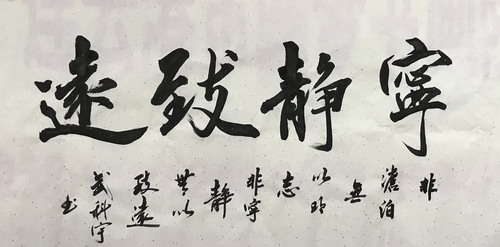 寧静致遠
非澹泊無以明志非寧静無以致遠 武科宇书